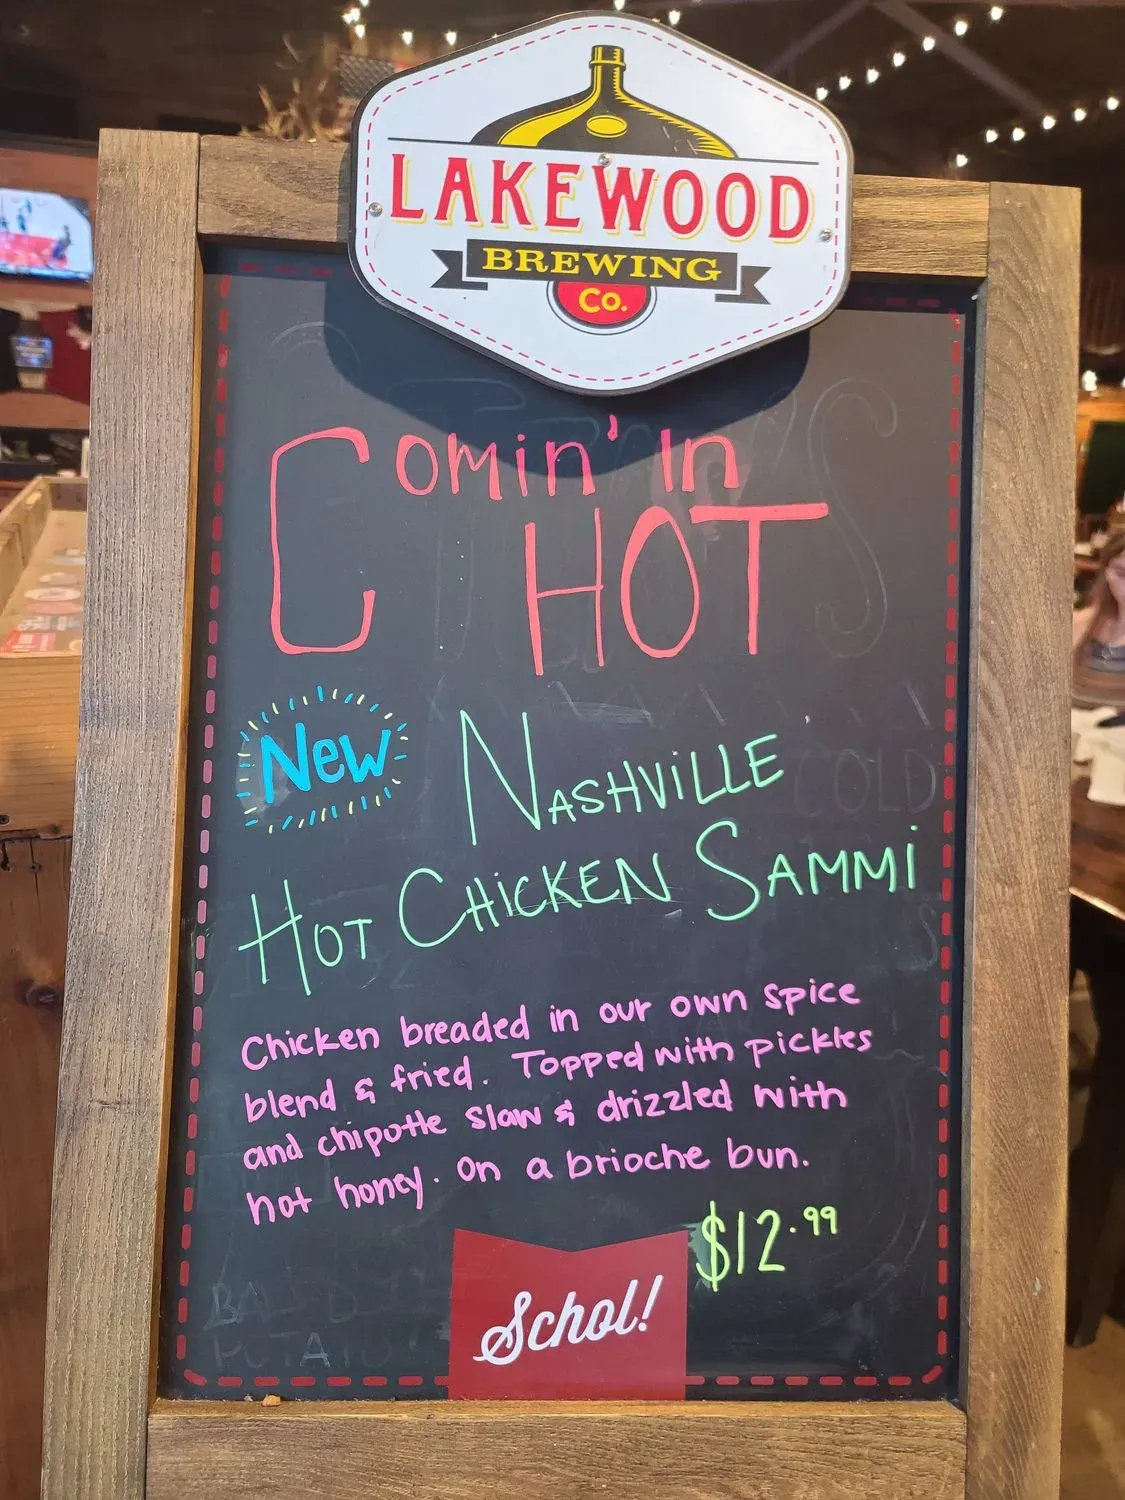 LAKEWOOD
BREWING
Co.
Comin' In
HOT
New
NASHViLLE
HOT CHiCKEN SAMMi
Chicken breaded in our own spice
blend & fried. Topped with pickles
and chipotle slaw & drizzled with
hot honey. On a brioche bun.
$12.99
Schol!
COLD